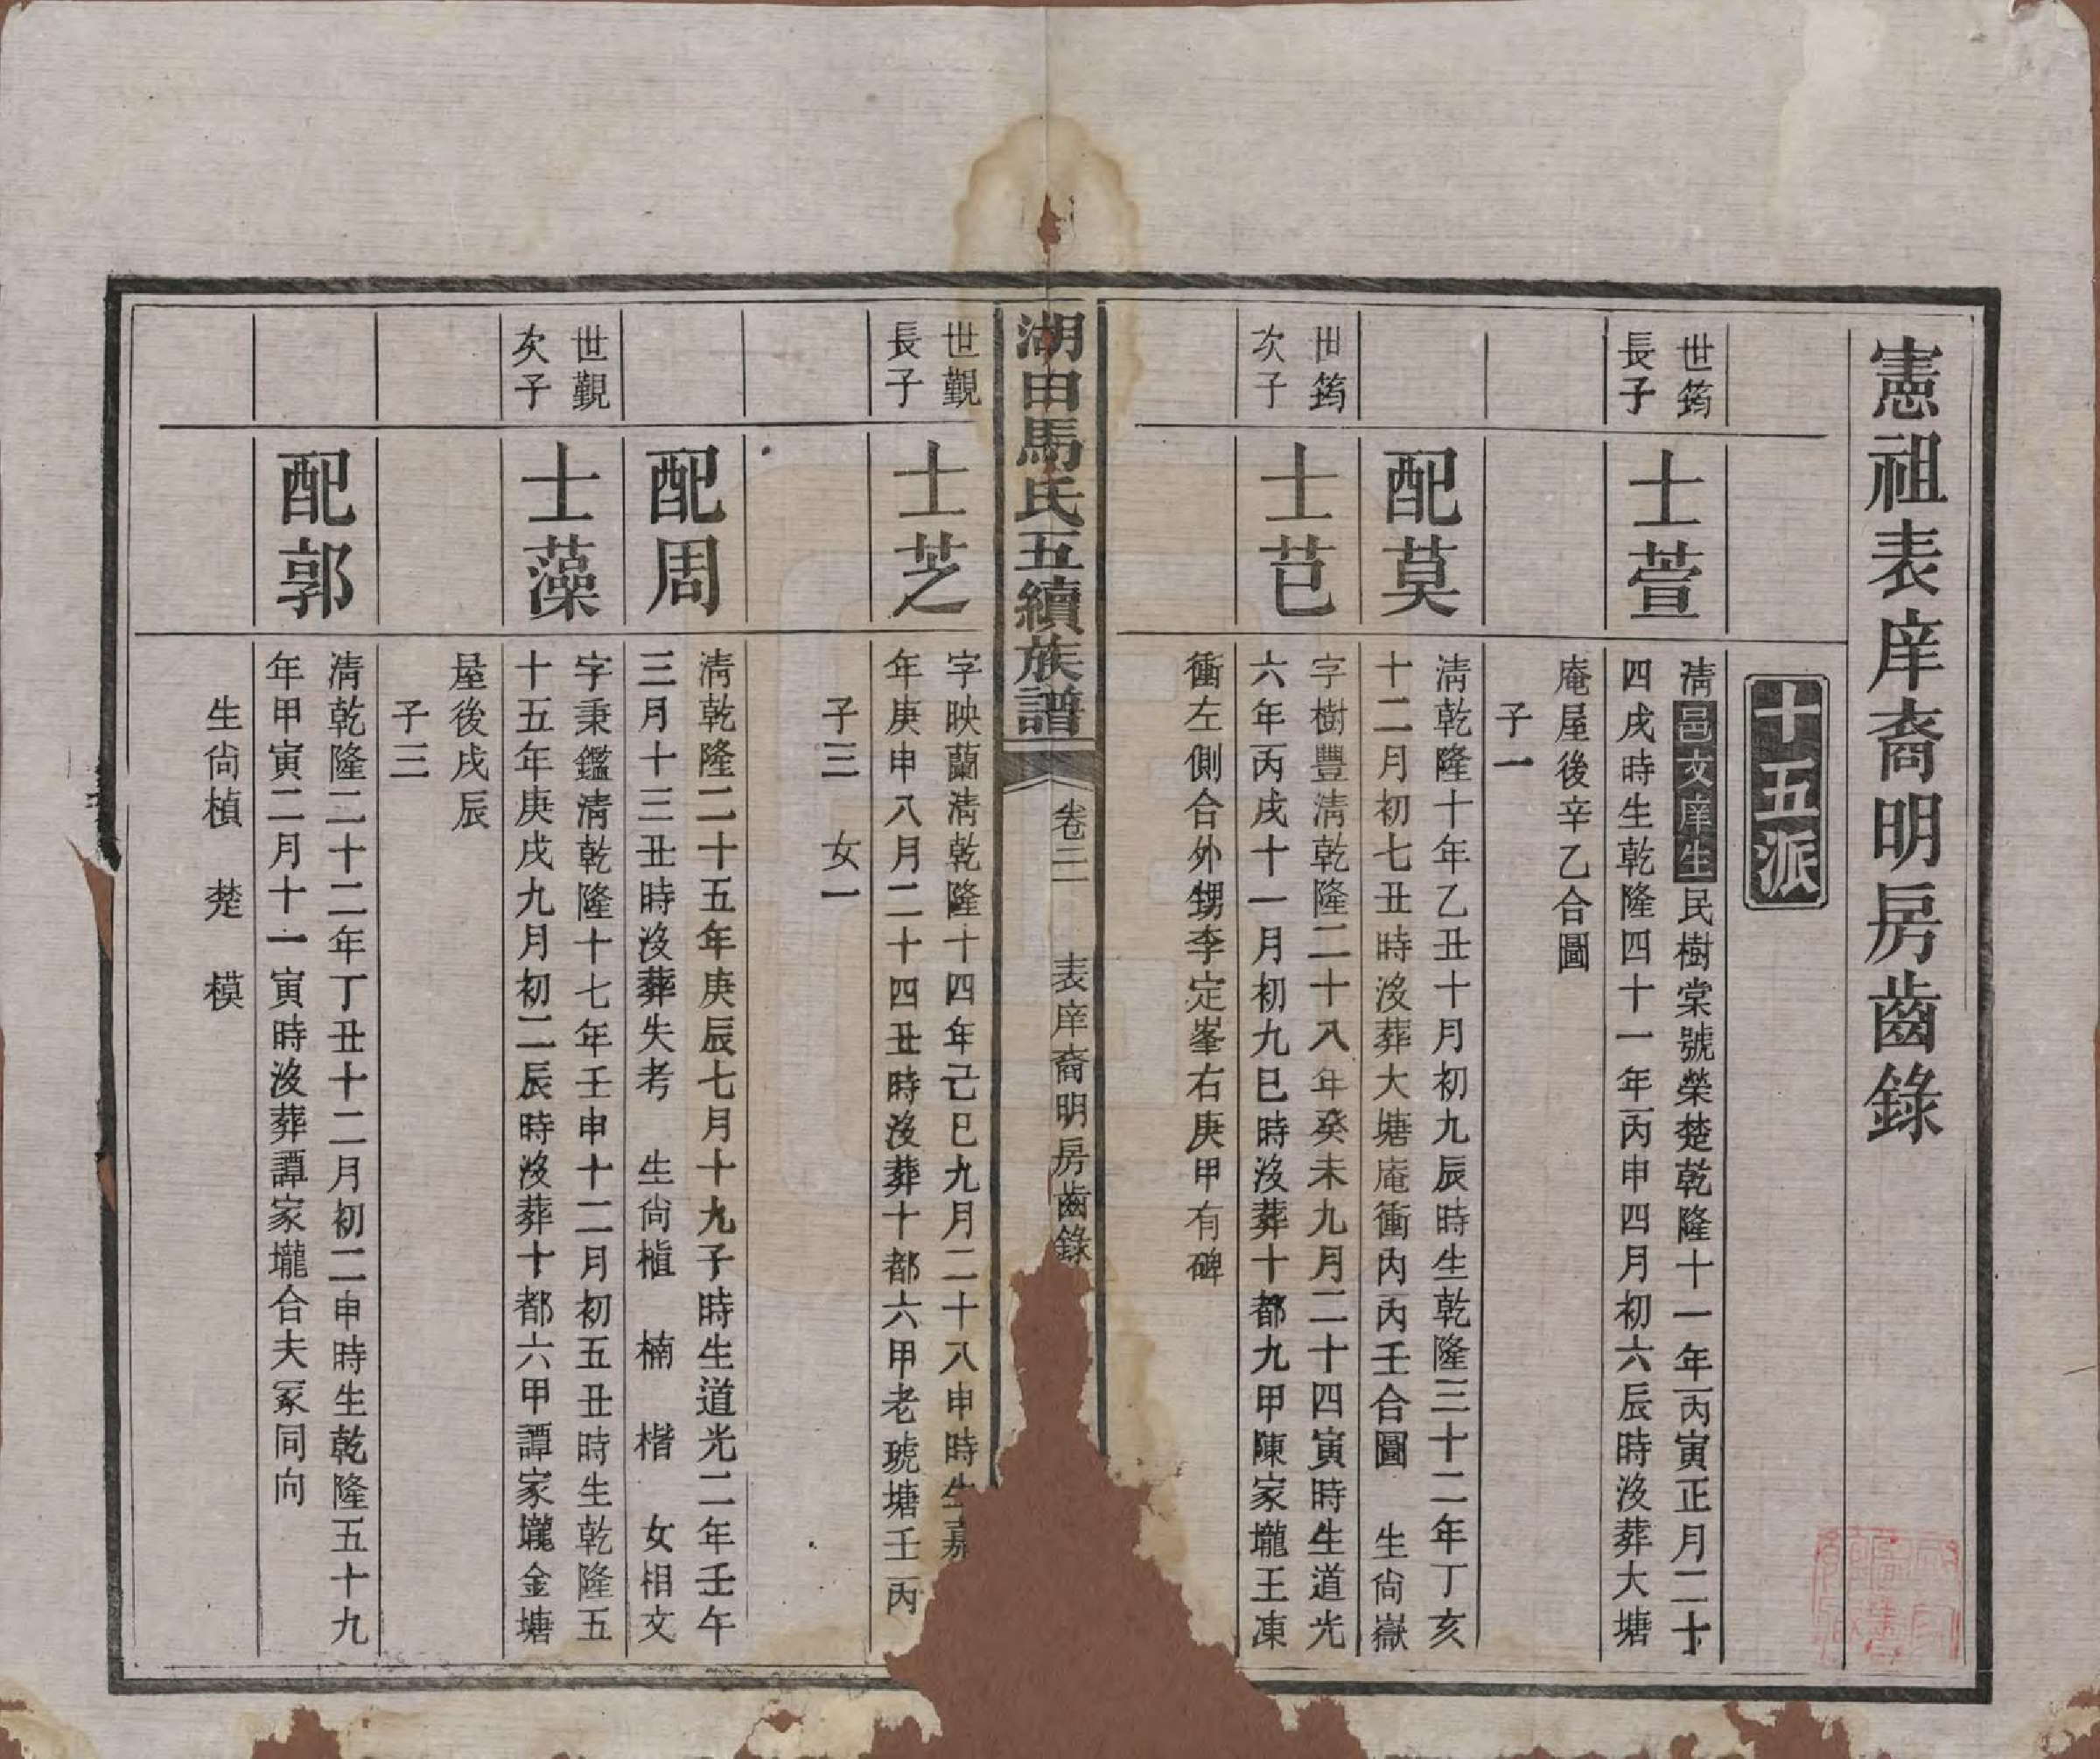 憲祖表庠裔明房齒錄
十五派
世筠
長子
士萱
淸邑文庠生民樹棠號榮楚乾隆十一年丙寅正月二十
四戌時生乾隆四十一年丙申四月初六辰時沒葬大塘
庵屋後辛乙合圖
子一
配莫
淸乾隆十年乙丑十月初九辰時生乾隆三十二年丁亥
十二月初七丑時沒葬大塘庵衝內丙壬合圖 生尙嶽
世筠
次子
士芑
字樹豐淸乾隆二十八年癸未九月二十四寅時生道光
六年丙戌十一月初九巳時沒葬十都九甲陳家壠王凍
衝左側合外甥李定峯右庚甲有碑
湖田馬氏五續族譜
卷二 表庠裔明房齒錄
世觀
長子
士芝
字映蘭淸乾隆十四年己巳九月二十八申時生嘉
年庚申八月二十四丑時沒葬十都六甲老琥塘壬丙
子三 女一
配周
淸乾隆二十五年庚辰七月十九子時生道光二年壬午
三月十三丑時沒葬失考 生尙植 楠 楷 女相文
世觀
次子
士藻
字秉鑑淸乾隆十七年壬申十二月初五丑時生乾隆五
十五年庚戌九月初二辰時沒葬十都六甲譚家壠金塘
屋後戌辰
子三
配郭
淸乾隆二十二年丁丑十二月初二申時生乾隆五十九
年甲寅二月十一寅時沒葬譚家壠合夫冢同向
生尙楨 楚 模